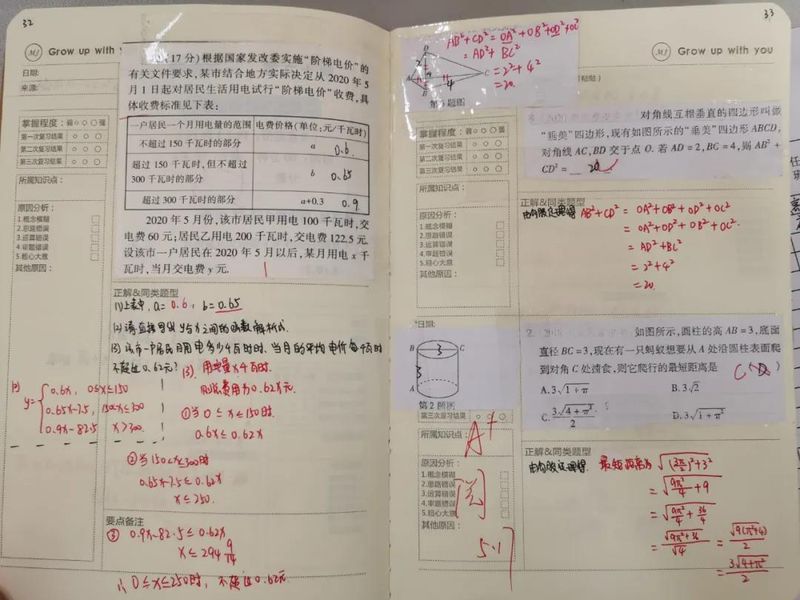 32
MJ Grow up with y
日期:
来源:
掌握程度: 弱 强
第一次复习结果
第二次复习结果
第三次复习结果
所属知识点:
原因分析:
1.概念模糊
2.思路错误
3.运算错误
4.审题错误
5.粗心大意
其他原因:
17 分) 根据国家发改委实施“阶梯电价”的
有关文件要求,某市结合地方实际决定从 2020 年 5
月 1 日起对居民生活用电试行“阶梯电价”收费,具
体收费标准见下表:
一户居民一个月用电量的范围 电费价格(单位:元/千瓦时)
不超过 150 千瓦时的部分 a 0.6
超过 150 千瓦时,但不超过
300 千瓦时的部分 b 0.65
超过 300 千瓦时的部分 a+0.3 0.9
2020 年 5 月份,该市居民甲用电 100 千瓦时,交
电费 60 元;居民乙用电 200 千瓦时,交电费 122.5 元.
设该市一户居民在 2020 年 5 月以后,某月用电 x 千
瓦时,当月交电费 y 元.
正解&同类题型
(1)上表中, a=0.6, b=0.65
(2)请直接写出y与x之间的函数解析式
(3)该市一户居民月用电多少千瓦时时,当月的平均电价每千瓦时
不超过0.62元?
(2) y= 0.6x, 0≤x≤150
0.65x-7.5, 150<x≤300
0.9x-82.5 x>300
(3) 用电量x千瓦时.
则电费为0.62x元.
①当0≤x≤150时.
0.6x≤0.62x
②当150<x≤300时
0.65x-7.5≤0.62x
x≤250.
要点备注
③ 0.9x-82.5≤0.62x
x≤294 9/14
∴0≤x≤250时, 不超过0.62元.
33
MJ Grow up with you
(粘贴)
AB²+CD² = OA²+OB²+OD²+OC²
=AD²+BC²
=2²+4²
=20.
第5题图
掌握程度: 弱 强
第一次复习结果
第二次复习结果
第三次复习结果
对角线互相垂直的四边形叫做
“垂美”四边形,现有如图所示的“垂美”四边形 ABCD,
对角线 AC,BD 交于点 O. 若 AD=2,BC=4,则 AB²+
CD²= 20
所属知识点:
原因分析:
1.概念模糊
2.思路错误
3.运算错误
4.审题错误
5.粗心大意
其他原因:
正解&同类题型
由勾股定理得 AB²+CD² = OA²+OB²+OD²+OC²
= OA²+OD²+OB²+OC²
= AD²+BC²
= 2²+4²
=20.
日期:
B 3 C
3
A
第2题图
如图所示,圆柱的高 AB=3,底面
直径 BC=3,现在有一只蚂蚁想要从 A 处沿圆柱表面爬
到对角 C 处捕食,则它爬行的最短距离是 ( C )
A.3√1+π B.3√2
C.3√4+π²/2 D.3√1+π²
第三次复习结果
所属知识点:
A+
原因分析:
1.概念模糊
2.思路错误
3.运算错误
4.审题错误
5.粗心大意
其他原因:
5.17
正解&同类题型
由勾股定理得 最短距离为 √(3π/2)²+3²
= √9π²/4+9
= √9π²/4+36/4
= √9π²+36/√4 = √9(π²+4)/2
= 3√4+π²/2